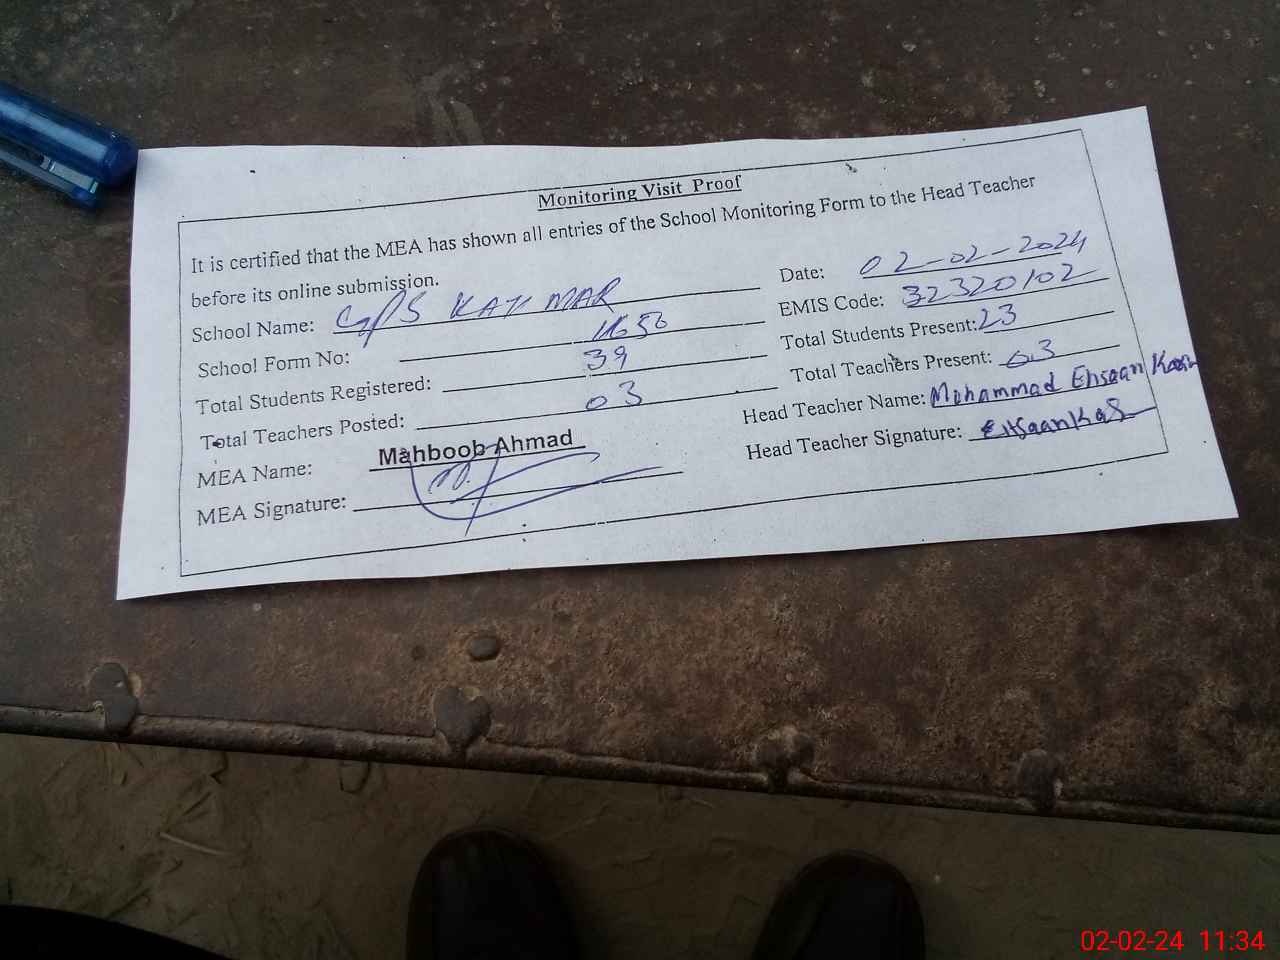 Monitoring Visit Proof
It is certified that the MEA has shown all entries of the School Monitoring Form to the Head Teacher
before its online submission.
Date: 02-02-2024
School Name: GPS KATIMAR
EMIS Code: 32320102
School Form No: 1650
Total Students Present: 23
Total Students Registered: 39
Total Teachers Present: 03
Total Teachers Posted: 03
Head Teacher Name: Mohammad Ehsaan
MEA Name: Mahboob Ahmad
Head Teacher Signature:
MEA Signature:
02-02-24 11:34